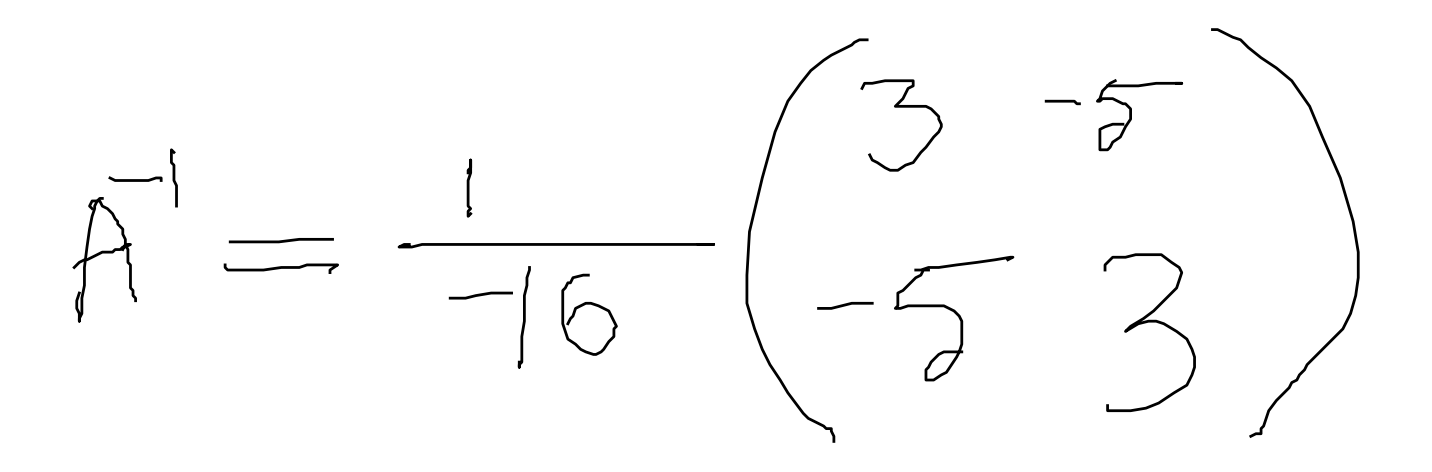 A^{-1} = \frac{1}{-16} \begin{pmatrix} 3 & -5 \\ -5 & 3 \end{pmatrix}